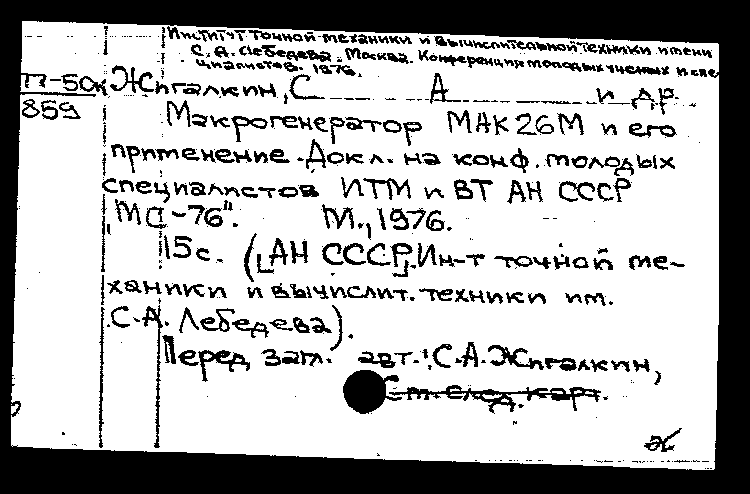 Институт точной механики и вычислительной техники имени
С. А. Лебедева. Москва. Конференция молодых ученых и спе-
циалистов. 1976.
77-50к Жигалкин, С А и др
859
Макрогенератор МАК26М и его
применение. Докл. на конф. молодых
специалистов ИТМ и ВТ АН СССР
"МС-76". М., 1976.
15с. ([АН СССР]. Ин-т точной ме-
ханики и вычислит. техники им.
С. А. Лебедева).
Перед загл. авт.: С.А. Жигалкин,
См. след. карт.